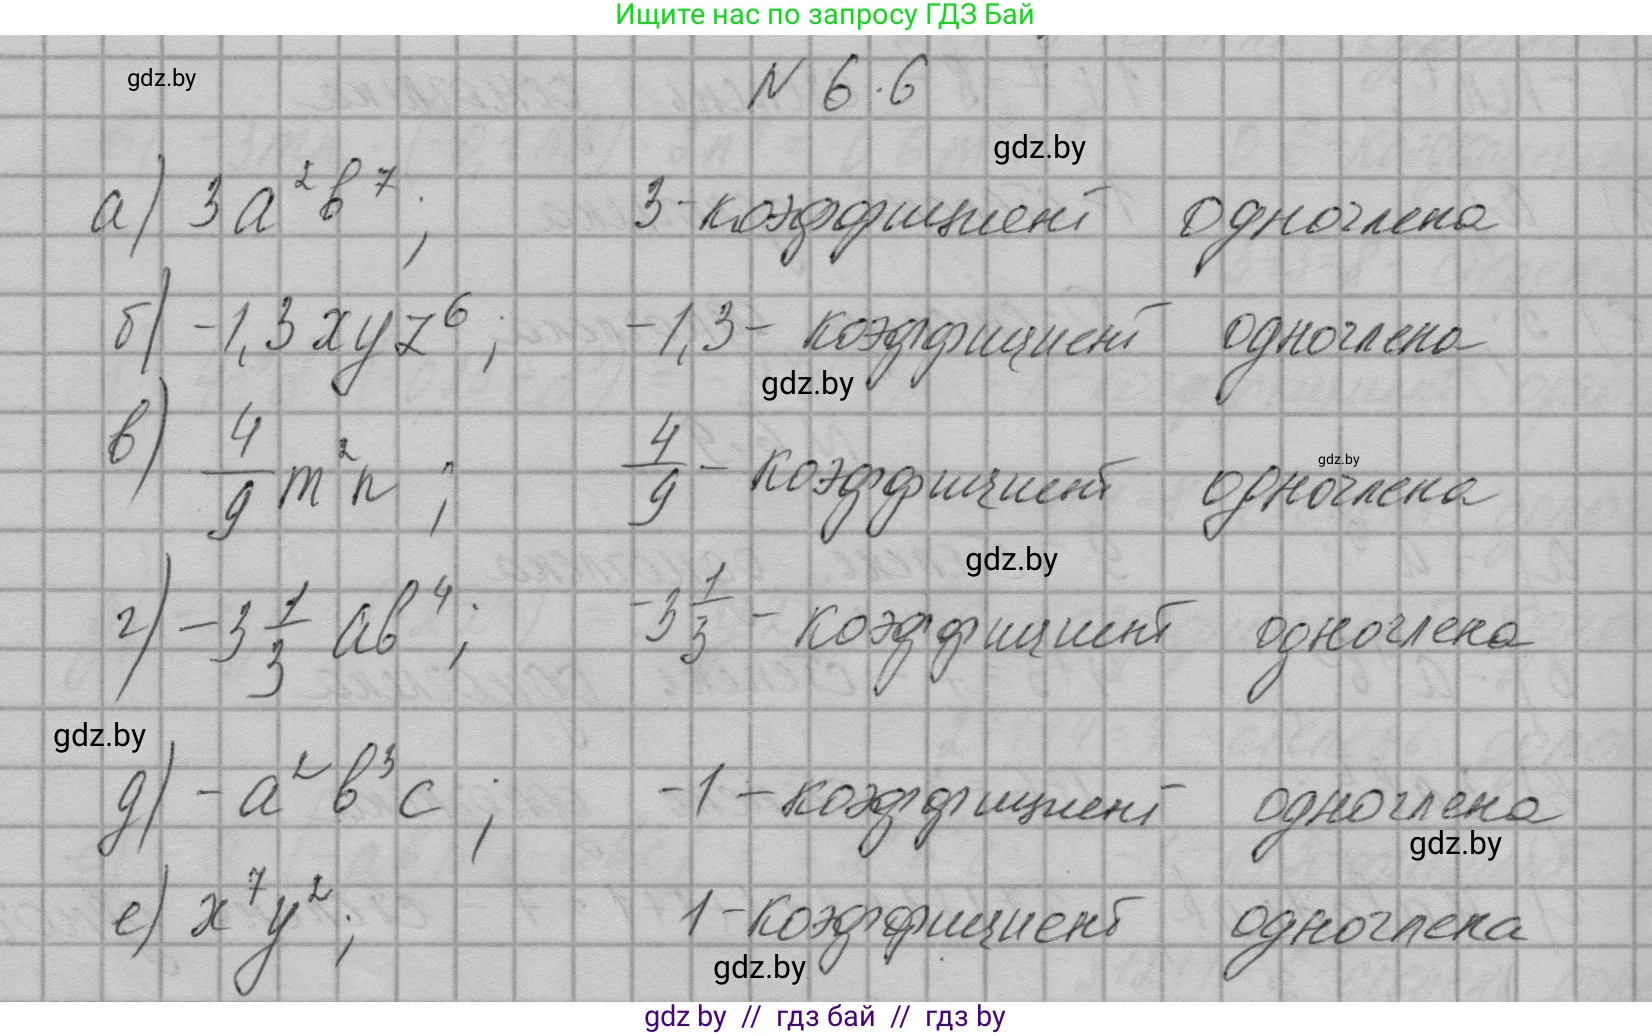 Ищите нас по запросу ГДЗ Бай
gdz.by
N 6.6
gdz.by
а) 3a²b⁷; 3 - коэффициент одночлена
б) -1,3xyz⁶; -1,3 - коэффициент одночлена
gdz.by
в) 4/9 m²n; 4/9 - коэффициент одночлена
gdz.by
gdz.by
г) -3 1/3 ab⁴; -3 1/3 - коэффициент одночлена
gdz.by
д) -a²b³c; -1 - коэффициент одночлена
gdz.by
е) x⁷y²; 1 - коэффициент одночлена
gdz.by
gdz by // гдз бай // гдз by